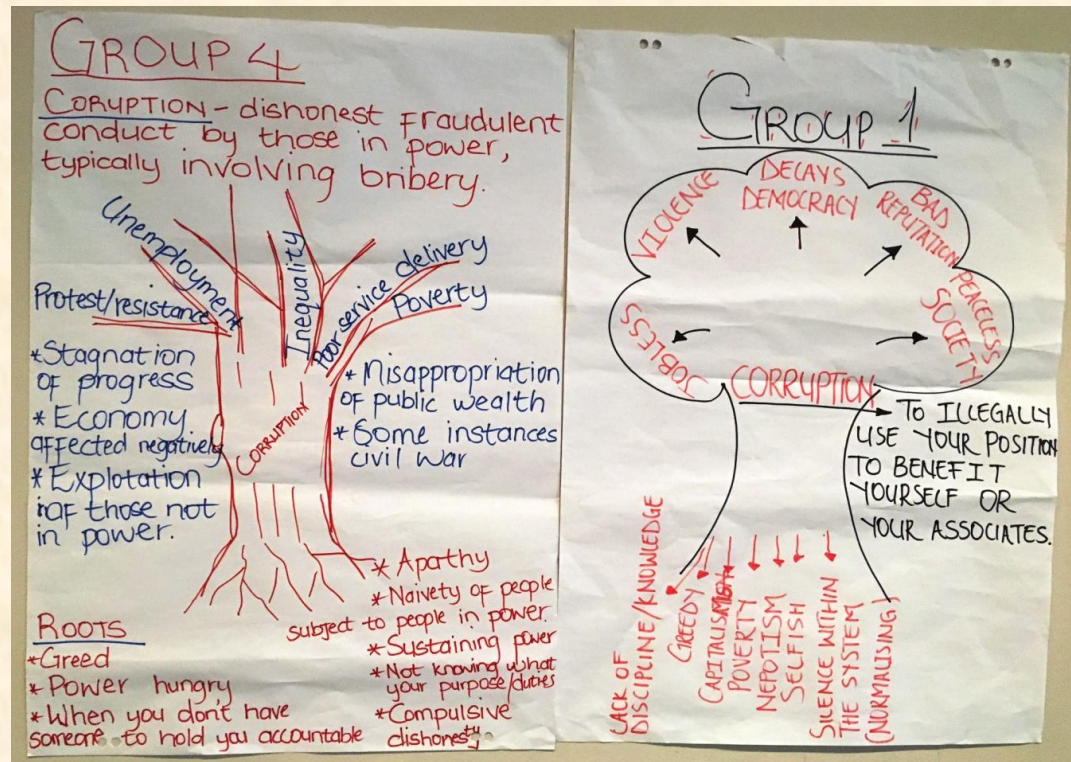 GROUP 4
CORUPTION - dishonest fraudulent
conduct by those in power,
typically involving bribery.
Unemployment
Inequality
Poor service delivery
Protest/resistance
Poverty
*Stagnation
of progress
* Economy
affected negatively
* Explotation
of those not
in power.
CORRUPTION
* Misappropriation
of public wealth
* Some instances
civil war
ROOTS
*Greed
* Power hungry
*When you don't have
someone to hold you accountable
* Apathy
* Naivety of people
subject to people in power.
*Sustaining power
*Not knowing what
your purpose/duties
*Compulsive
dishonesty
GROUP 1
VIOLENCE
DELAYS
DEMOCRACY
BAD
REPUTATION
PEACELESS
SOCIETY
JOBLESS
CORRUPTION
TO ILLEGALLY
USE YOUR POSITION
TO BENEFIT
YOURSELF OR
YOUR ASSOCIATES.
LACK OF
DISCIPLINE/KNOWLEDGE
GREEDY
POVERTY
NEPOTISM
SELFISH
SILENCE WITHIN
THE SYSTEM
(NORMALISING)